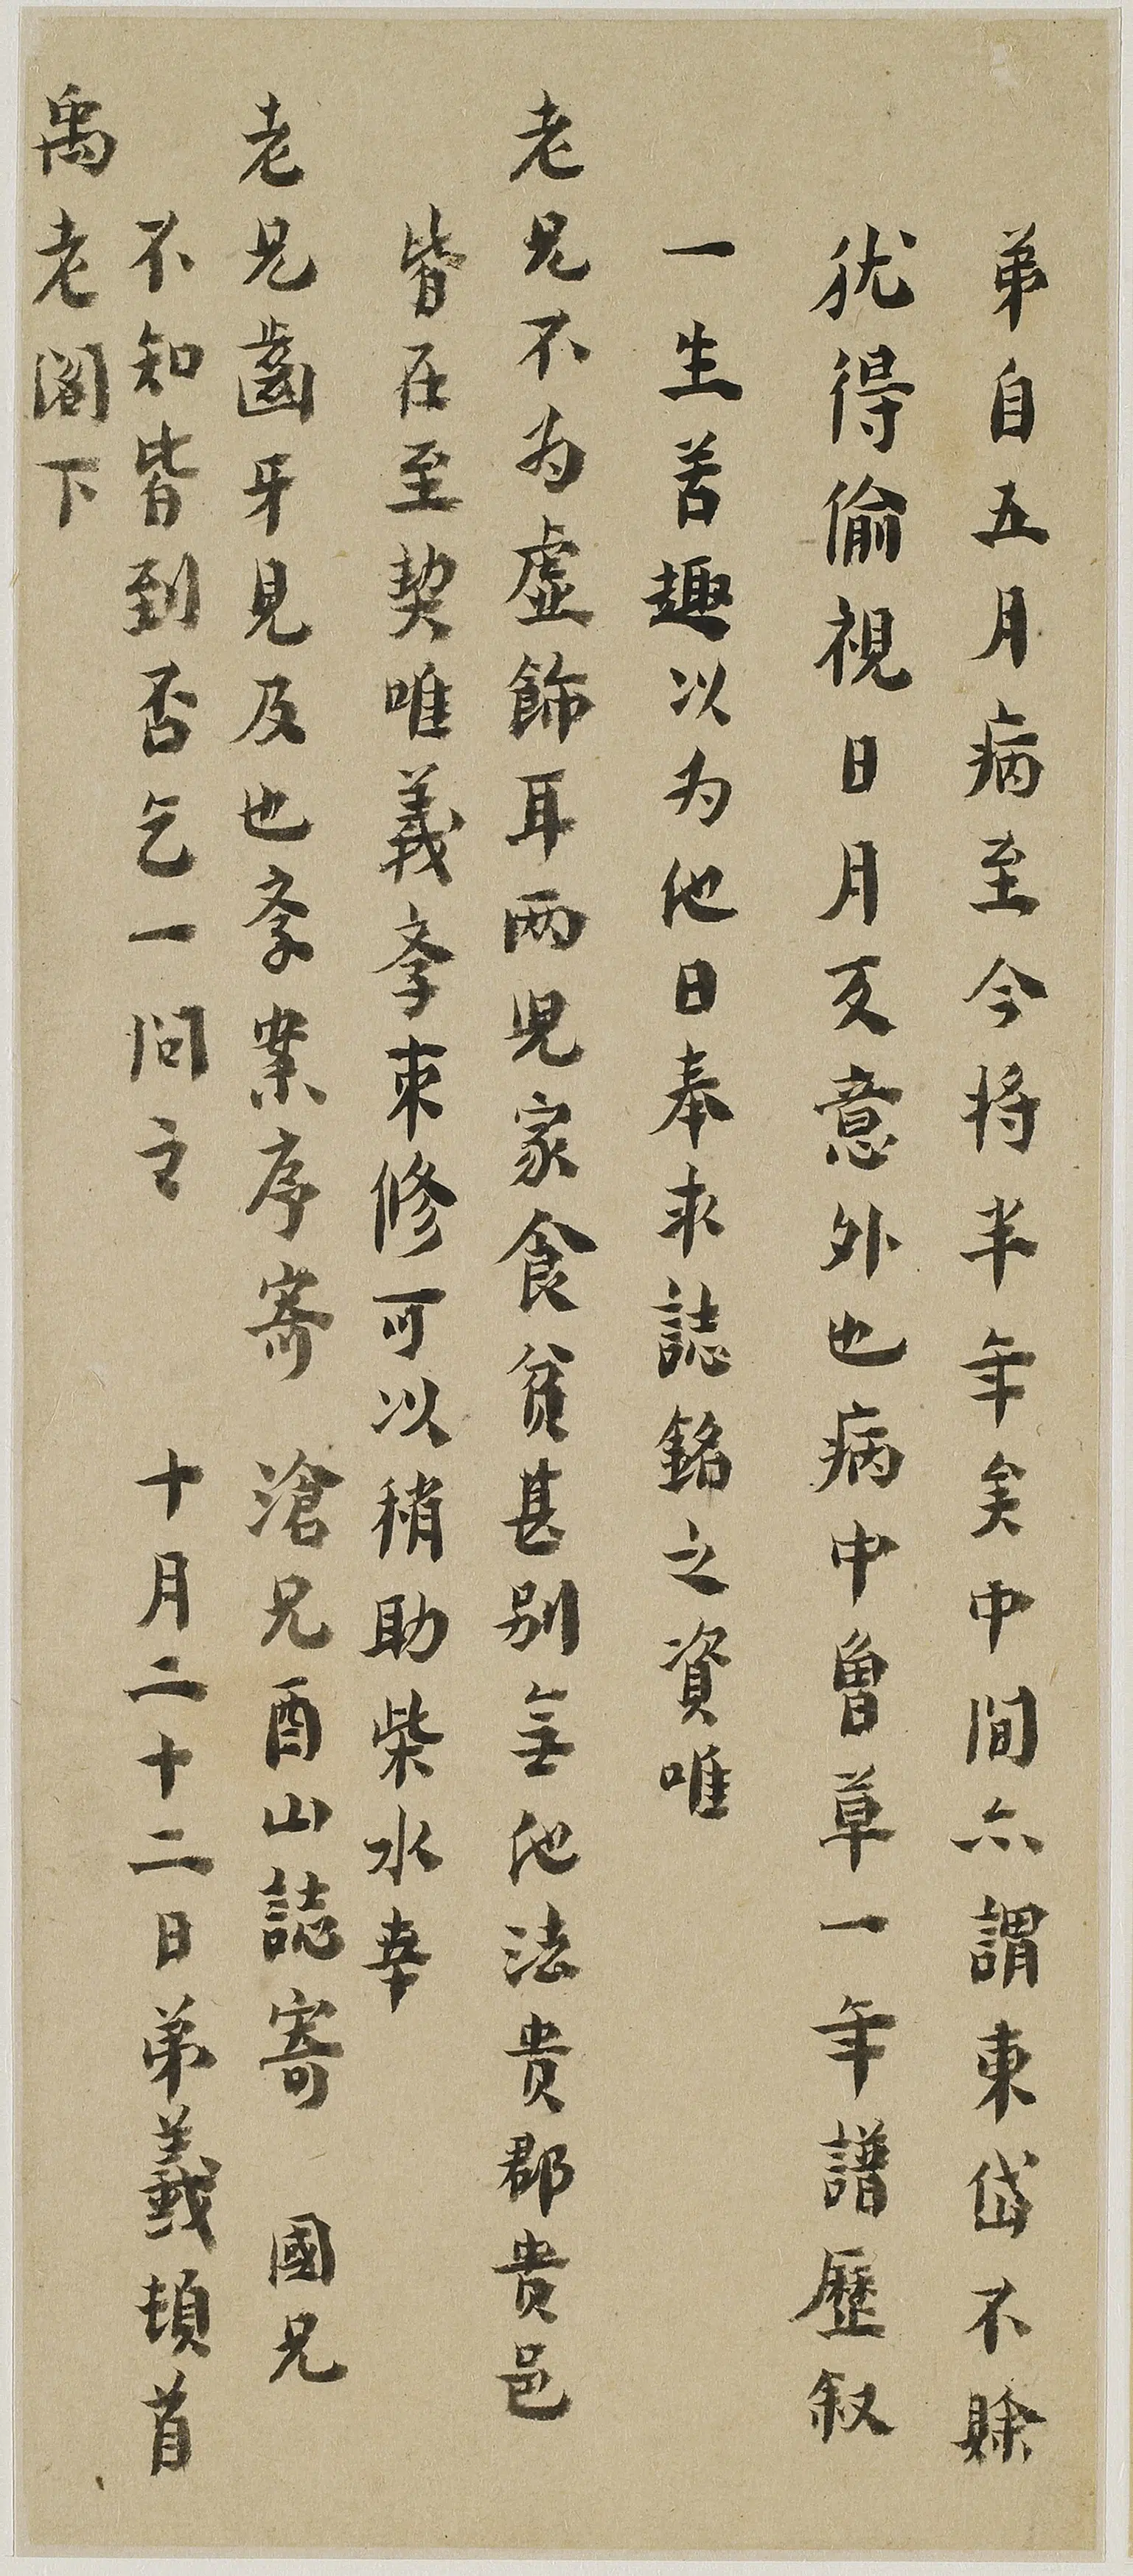 弟自五月病至今将半年矣中間亦謂東岱不賒
犹得偷視日月反意外也病中曾草一年譜歷叙
一生苦趣以为他日奉求誌銘之資唯
老兄不为虛飾耳两児家食貧甚别無他法贵郡贵邑
皆在至契唯義孝束修可以稍助柴水幸
老兄齒牙見及也孝案序寄 滄兄酉山誌寄 國兄
不知皆到否乞一問之 十月二十二日弟義頓首
禹老阁下